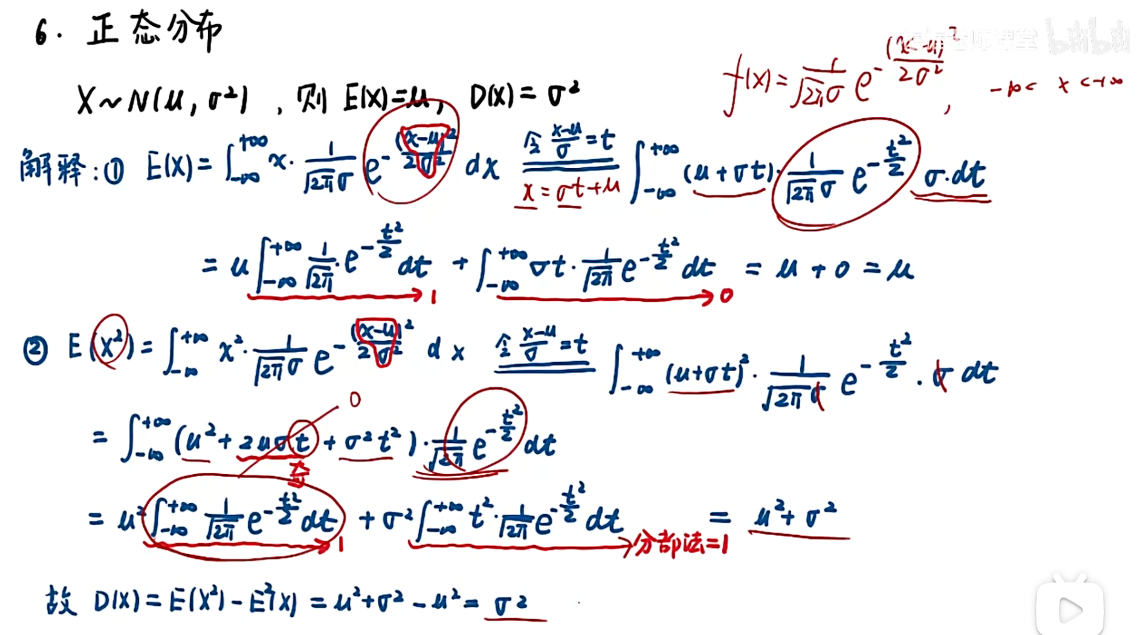 6. 正态分布
f(x)=1/(√2π σ) e^(-(x-μ)²/(2σ²)), -∞< x <+∞
X~N(μ, σ²), 则 E(X)=μ, D(X)=σ²
解释:① E(X)=∫_{-∞}^{+∞} x·1/(√2π σ) e^(-(x-μ)²/(2σ²)) dx 令 (x-μ)/σ=t x=σt+μ ∫_{-∞}^{+∞} (μ+σt)·1/(√2π σ) e^(-t²/2) σ·dt
= μ∫_{-∞}^{+∞} 1/√2π · e^(-t²/2) dt + ∫_{-∞}^{+∞} σt·1/√2π e^(-t²/2) dt = μ+0=μ
1 0
② E(x²)=∫_{-∞}^{+∞} x²·1/(√2π σ) e^(-(x-μ)²/(2σ²)) dx 令 (x-μ)/σ=t ∫_{-∞}^{+∞} (μ+σt)²·1/(√2π σ) e^(-t²/2)·σ dt
0
= ∫_{-∞}^{+∞} (μ²+2μσt+σ²t²)·1/√2π e^(-t²/2) dt
奇
= μ²∫_{-∞}^{+∞} 1/√2π e^(-t²/2) dt + σ²∫_{-∞}^{+∞} t²·1/√2π e^(-t²/2) dt = μ²+σ²
1 分部法=1
故 D(X)=E(X²)-E²(X)=μ²+σ²-μ²=σ²
bilibili